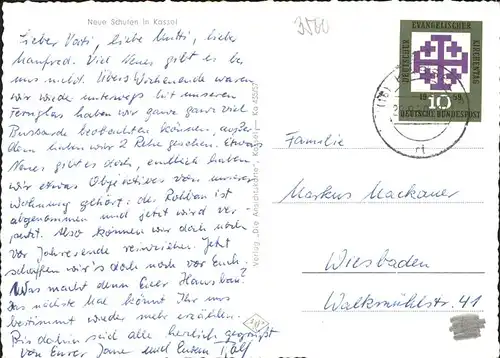 Neue Schulen in Kassel
Lieber Vati, liebe Mutti, lieber
Manfred. Viel Neues gibt es bei
uns nicht. Übers Wochenende waren
wir wieder unterwegs. Mit unserem
Fernglas haben wir ganz ganz viel
Bussarde beobachten können, außer
dem haben wir 2 Rehe gesehen. Etwas
Neues gibt es doch, endlich haben
wir etwas Objektives von unserer
Wohnung gehört: der Rohbau ist
abgenommen und jetzt wird ver-
putzt. Also können wir doch noch
vor Jahresende reinziehen. Jetzt
schaffen wir's doch noch vor Euch.
Was macht denn Euer Hausbau?
Das nächste Mal könnt Ihr uns
bestimmt wieder mehr erzählen.
Bis dahin seid alle herzlich gegrüßt
von Eurer Jane und Eurem Rolf
Verlag „Die Ansichtskarte", Kassel
3500
DEUTSCHER EVANGELISCHER KIRCHENTAG
10
DEUTSCHE BUNDESPOST
(16)
Familie
Markus Mackauer
Wiesbaden
Walkmühlstr. 41